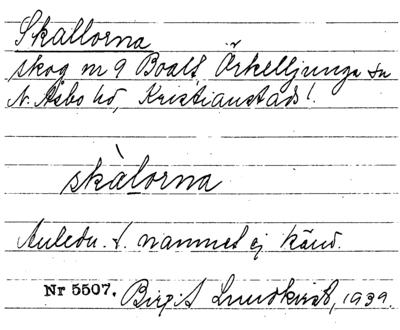 Skallorna
skog nr 9 Boalt, Örkelljunga sn
N. Åsbo hd, Kristianstads l.
skàlorna
Anledn. t. namnet ej känd.
Nr 5507. Birgit Lundkvist, 1939.